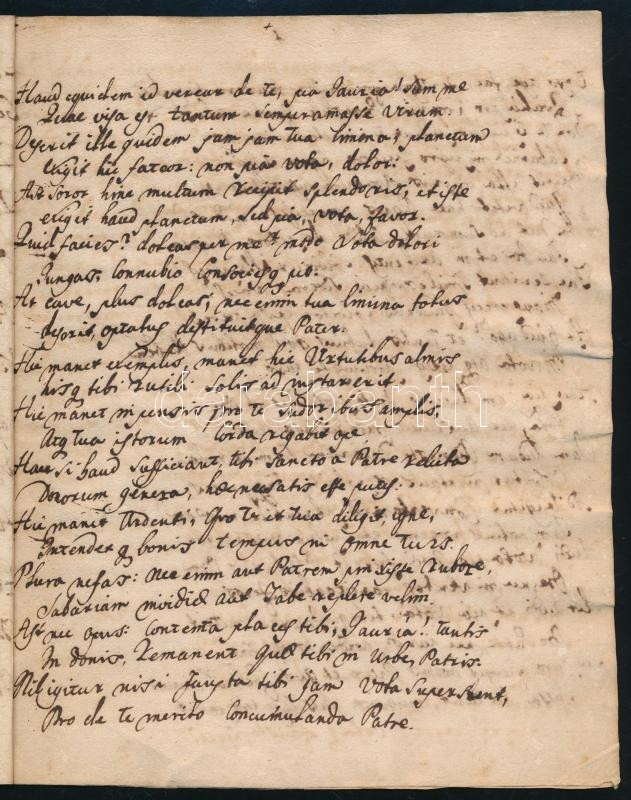 Haud equidem id vereur de te, pia Jauria! Sum me
Quae visa est tantum semper amasse virum.
Deserit ille quidem jam jam tua limina; planctum
exigit hic fateor: non pia vota, dolor:
Ast Soror hinc multum recipit splendoris, et iste
exigit haud planctum, sed pia, vota, favor.
Quid facies? doleas per me: modo Vota dolori
Jungas; Connubio
At cave, plus doleas; nec enim tua limina totus
deserit, optatus destituitque Pater.
Hic manet exemplis, manet hic Virtutibus almis
hisq tibi rutili Solis ad instar erit.
Hic manet impensis pro te Sudoribus amplis;
Atq tua istorum Corda rigabit ope.
Haec si haud sufficiant, tibi Sancto a Patre relicta
Donorum genera, haec satis esse putes.
Hic manet Ardenti, quo te et tua diligit, igne,
Intendet q bonis tempus in omne tuis.
Plura nefas: nec enim aut Patrem rubore,
Sabariam aut Tabe replere velim
Ast nec opus: Contenta places tibi, Jauria! tantis
In donis, remanent quae tibi in Urbe, Patris.
Nil igitur nisi Juncta tibi jam Vota Supersunt,
Pro de te merito Concumulanda Patre.
darabanth